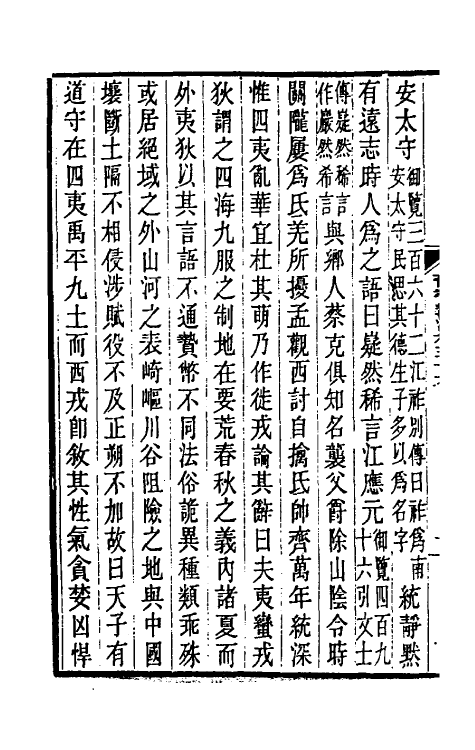 安太守御覽三百六十二江祚別傳曰祚爲南安太守民思其德生子多以爲名字統靜默
有遠志時人爲之語曰嶷然稀言江應元御覽四百九十六引文士
傳嶷然稀言作嚴然希言與鄉人蔡克俱知名襲父爵除山陰令時
關隴屢爲氐羌所擾孟觀西討自擒氐帥齊萬年統深
惟四夷亂華宜杜其萌乃作徙戎論其辭曰夫夷蠻戎
狄謂之四海九服之制地在要荒春秋之義內諸夏而
外夷狄以其言語不通贄幣不同法俗詭異種類乖殊
或居絕域之外山河之表崎嶇川谷阻險之地與中國
壤斷土隔不相侵涉賦役不及正朔不加故曰天子有
道守在四夷禹平九土而西戎卽敘其性氣貪婪凶悍